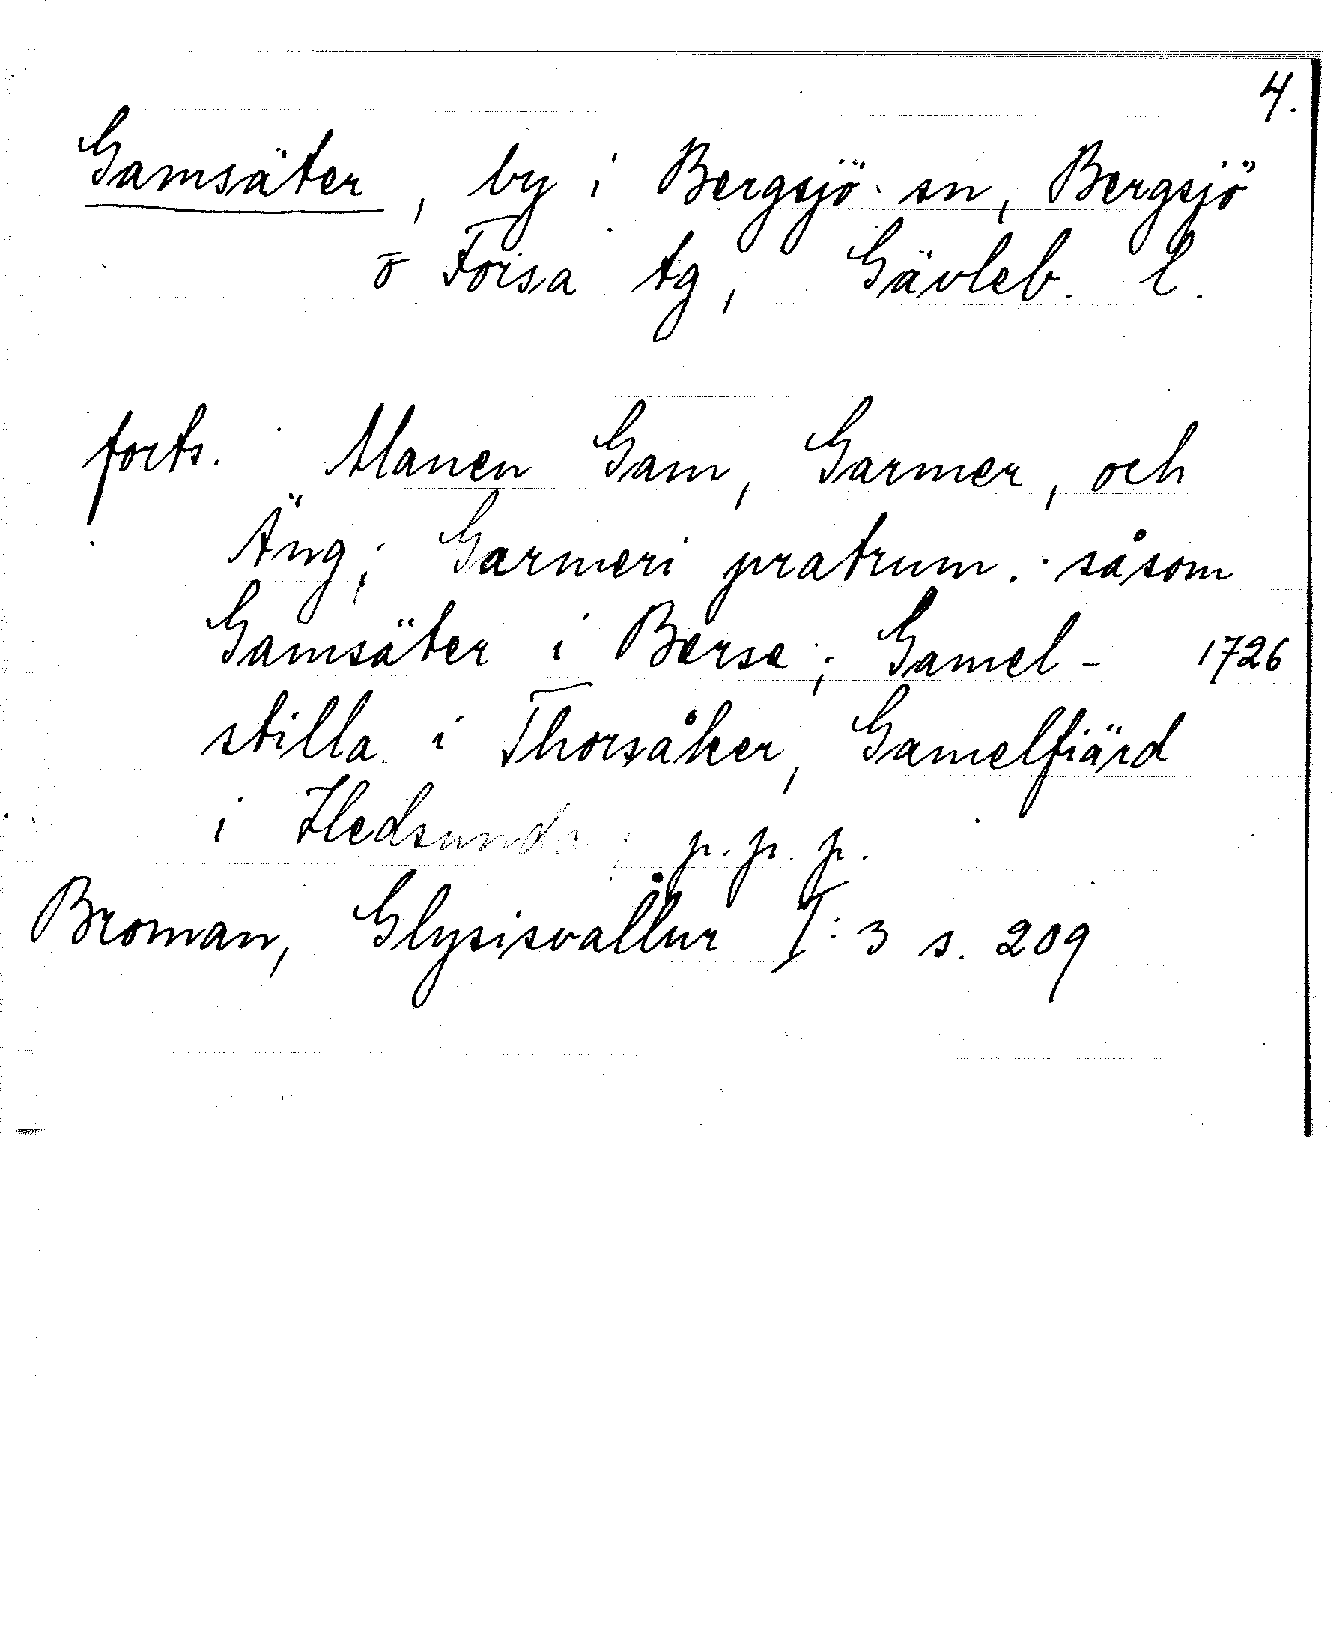 4.
Gamsäter, by i Bergsjö sn, Bergsjö
o Forsa tg, Gävleb. l.
forts. Manen Gam, Garmer, och
Äng; Garmeri pratrum. såsom
Gamsäter i Berse; Gamel- 1726
stilla i Thorsåker, Gamelfiärd
i Hedsunda; p.p.p.
Broman, Glysisvallur I:3 s. 209